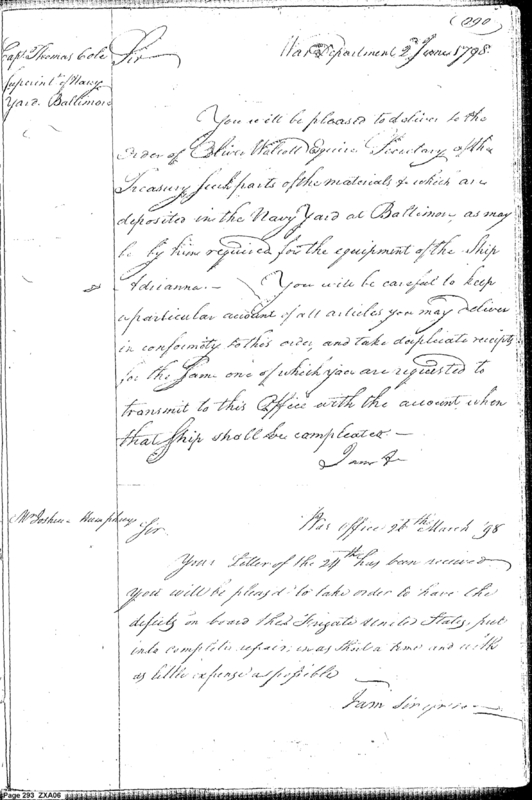 (290)
Capt. Thomas Cole
Superintt. of Navy
Yard. Baltimore
Sir
War Department 2d June 1798
You will be pleased to deliver to the
Order of Oliver Wolcott Esquire Secretary of the
Treasury such parts of the materials & which are
deposited in the Navy Yard at Baltimore, as may
be by him required for the equipment of the Ship
Adrianna. — You will be careful to keep
a particular account of all articles you may deliver
in conformity to this order, and take duplicate receipts
for the Same one of which you are requested to
transmit to this Office with the account when
that Ship shall be compleated —
I am &
Mr. Joshua Humphreys
Sir
War Office 26th March '98
Your Letter of the 24th has been received
you will be pleased to take order to have the
defects on board the Frigate United States, put
into complete repair, in as short a time and with
as little expense as possible
I am Sir
Page 293 ZXA06